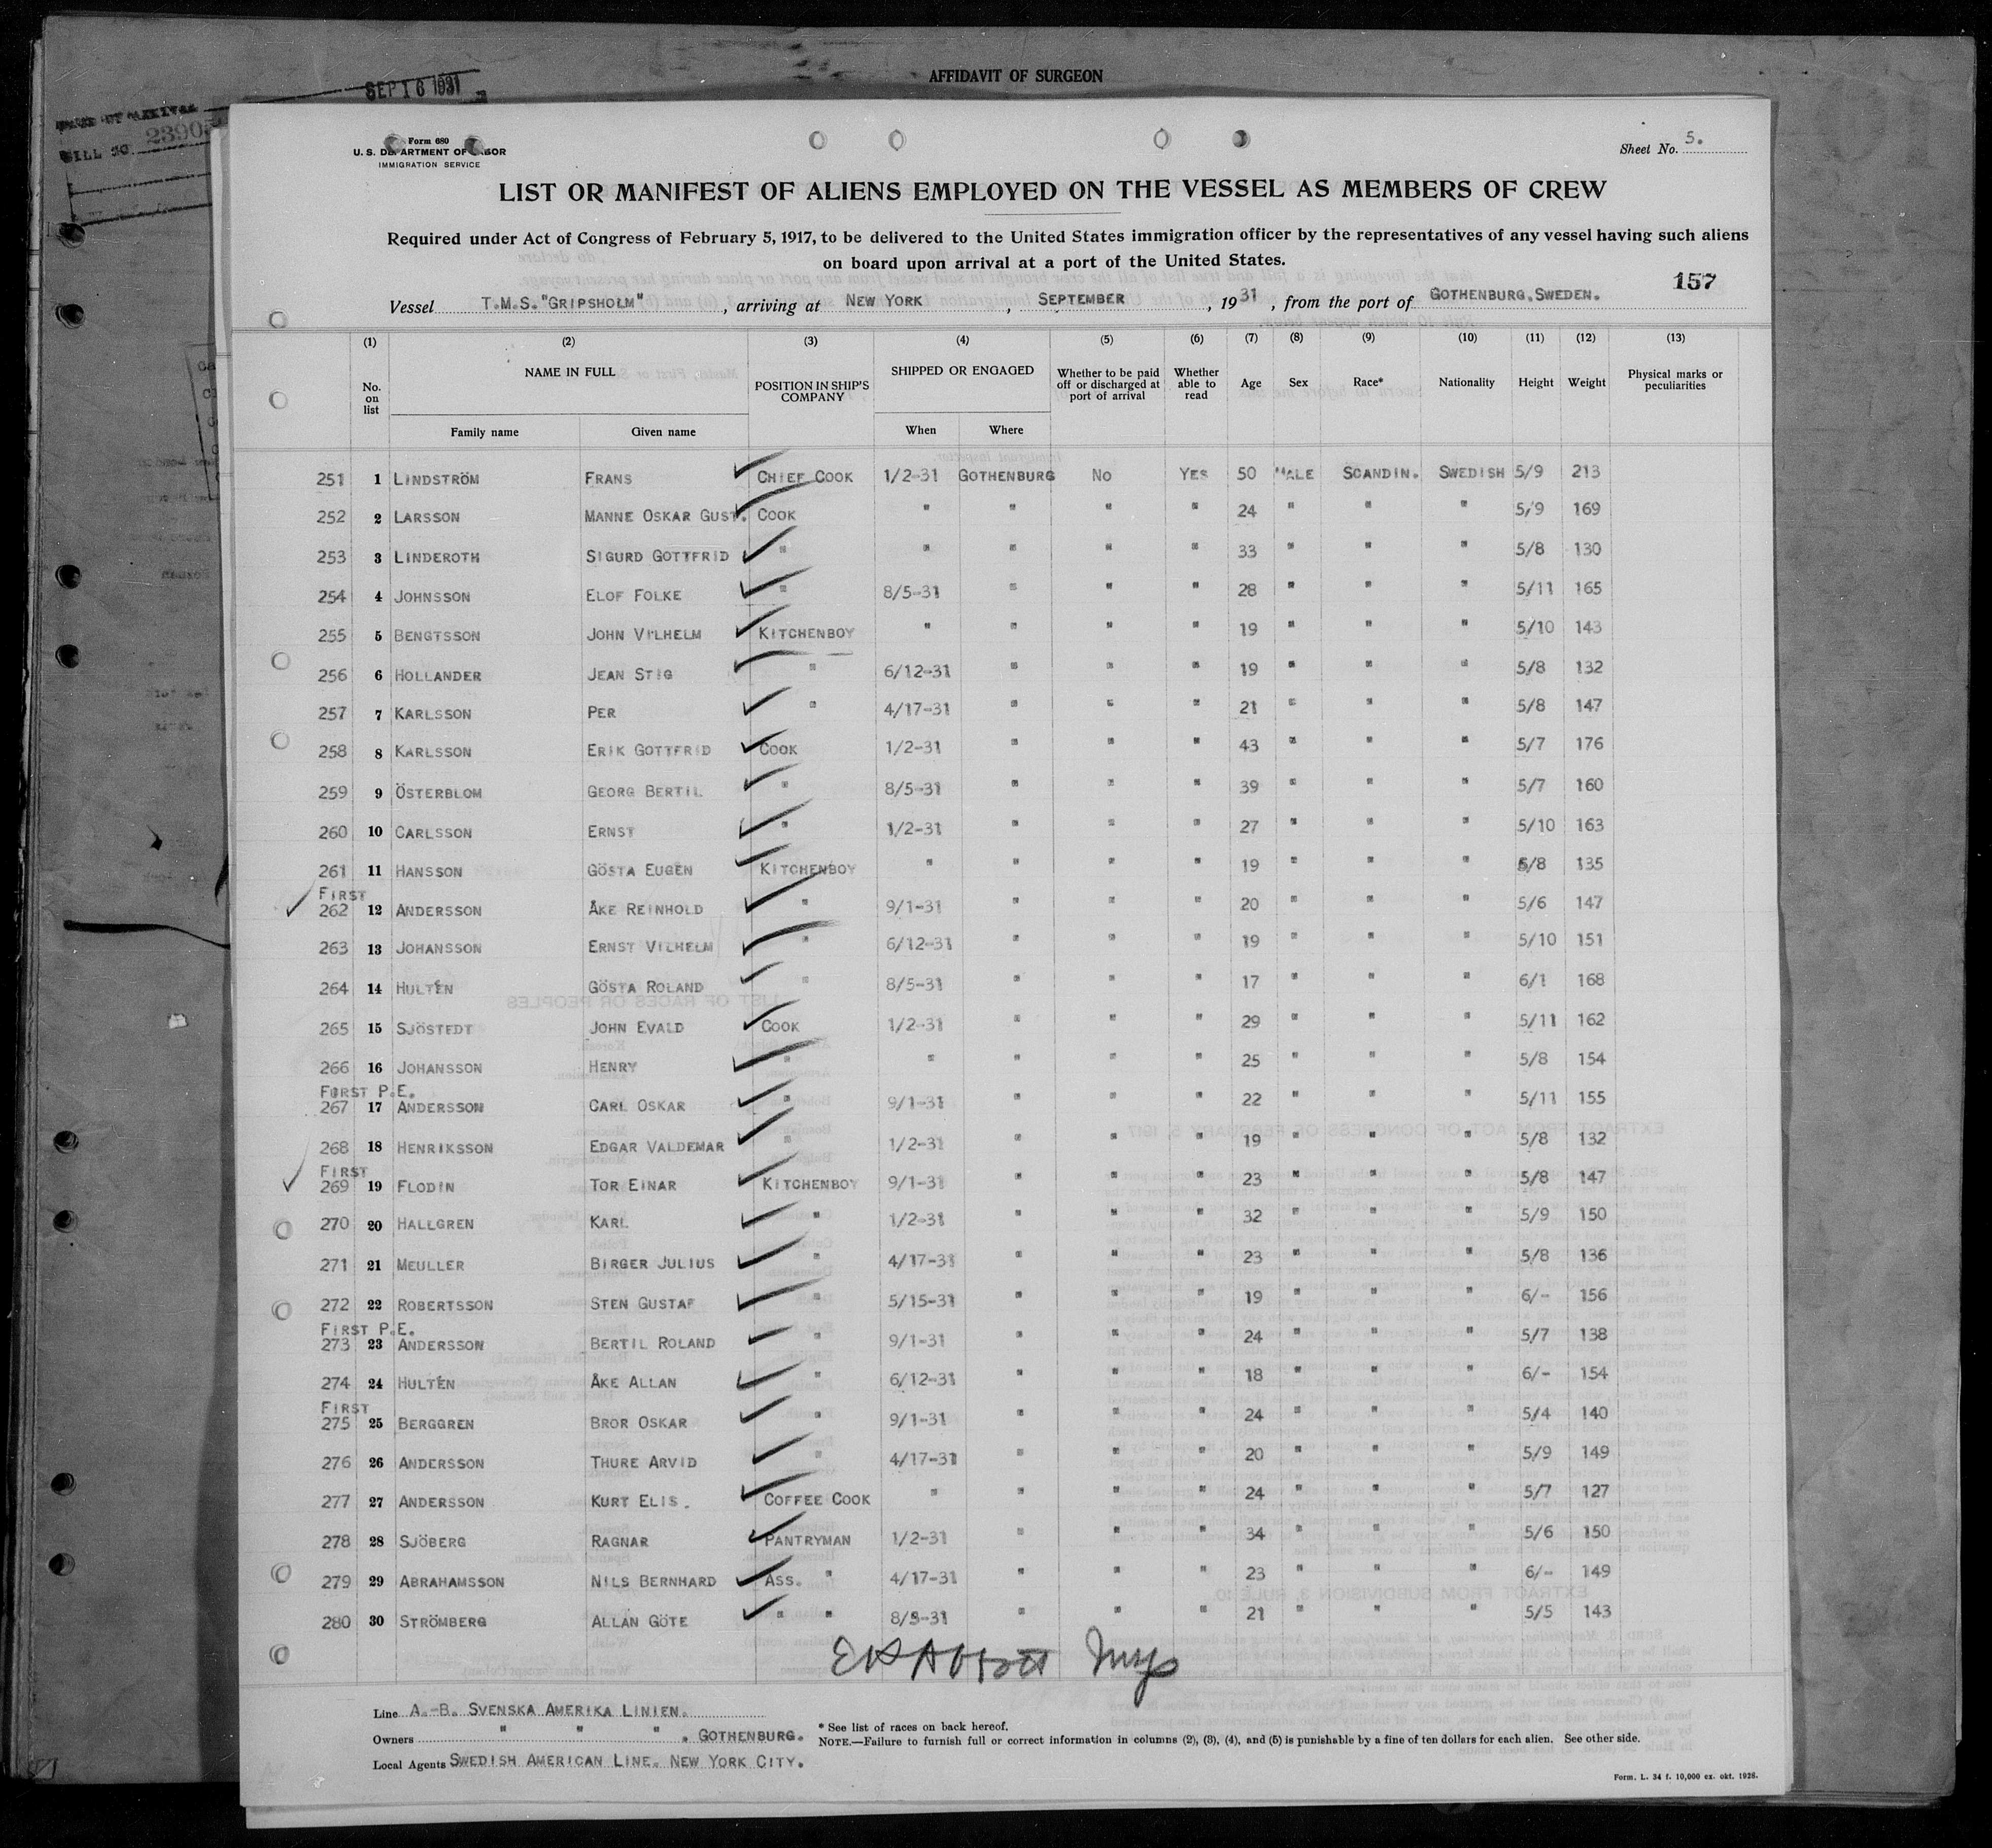 AFFIDAVIT OF SURGEON
SEP 16 1931
Form 680
U. S. DEPARTMENT OF LABOR
IMMIGRATION SERVICE
Sheet No. 5.
LIST OR MANIFEST OF ALIENS EMPLOYED ON THE VESSEL AS MEMBERS OF CREW
Required under Act of Congress of February 5, 1917, to be delivered to the United States immigration officer by the representatives of any vessel having such aliens
on board upon arrival at a port of the United States.
157
Vessel T.M.S. "GRIPSHOLM", arriving at NEW YORK, SEPTEMBER, 1931, from the port of GOTHENBURG, SWEDEN.
(1) (2) (3) (4) (5) (6) (7) (8) (9) (10) (11) (12) (13)
No. on list NAME IN FULL POSITION IN SHIP'S COMPANY SHIPPED OR ENGAGED Whether to be paid off or discharged at port of arrival Whether able to read Age Sex Race* Nationality Height Weight Physical marks or peculiarities
Family name Given name When Where
251 1 LINDSTRÖM FRANS CHIEF COOK 1/2-31 GOTHENBURG NO YES 50 MALE SCANDIN. SWEDISH 5/9 213
252 2 LARSSON MANNE OSKAR GUST. COOK " " " " 24 " " " 5/9 169
253 3 LINDEROTH SIGURD GOTTFRID " " " " " 33 " " " 5/8 130
254 4 JOHNSSON ELOF FOLKE " 8/5-31 " " " 28 " " " 5/11 165
255 5 BENGTSSON JOHN VILHELM KITCHENBOY " " " " 19 " " " 5/10 143
256 6 HOLLANDER JEAN STIG " 6/12-31 " " " 19 " " " 5/8 132
257 7 KARLSSON PER " 4/17-31 " " " 21 " " " 5/8 147
258 8 KARLSSON ERIK GOTTFRID COOK 1/2-31 " " " 43 " " " 5/7 176
259 9 ÖSTERBLOM GEORG BERTIL " 8/5-31 " " " 39 " " " 5/7 160
260 10 CARLSSON ERNST " 1/2-31 " " " 27 " " " 5/10 163
261 11 HANSSON GÖSTA EUGEN KITCHENBOY " " " " 19 " " " 5/8 135
FIRST
262 12 ANDERSSON ÅKE REINHOLD " 9/1-31 " " " 20 " " " 5/6 147
263 13 JOHANSSON ERNST VILHELM " 6/12-31 " " " 19 " " " 5/10 151
264 14 HULTÉN GÖSTA ROLAND " 8/5-31 " " " 17 " " " 6/1 168
265 15 SJÖSTEDT JOHN EVALD COOK 1/2-31 " " " 29 " " " 5/11 162
266 16 JOHANSSON HENRY " " " " " 25 " " " 5/8 154
FIRST P.E.
267 17 ANDERSSON CARL OSKAR " 9/1-31 " " " 22 " " " 5/11 155
268 18 HENRIKSSON EDGAR VALDEMAR " 1/2-31 " " " 19 " " " 5/8 132
FIRST
269 19 FLODIN TOR EINAR KITCHENBOY 9/1-31 " " " 23 " " " 5/8 147
270 20 HALLGREN KARL " 1/2-31 " " " 32 " " " 5/9 150
271 21 MEULLER BIRGER JULIUS " 4/17-31 " " " 23 " " " 5/8 136
272 22 ROBERTSSON STEN GUSTAF " 5/15-31 " " " 19 " " " 6/- 156
FIRST P.E.
273 23 ANDERSSON BERTIL ROLAND " 9/1-31 " " " 24 " " " 5/7 138
274 24 HULTÉN ÅKE ALLAN " 6/12-31 " " " 18 " " " 6/- 154
FIRST
275 25 BERGGREN BROR OSKAR " 9/1-31 " " " 24 " " " 5/4 140
276 26 ANDERSSON THURE ARVID " 4/17-31 " " " 20 " " " 5/9 149
277 27 ANDERSSON KURT ELIS. COFFEE COOK " " " " 24 " " " 5/7 127
278 28 SJÖBERG RAGNAR PANTRYMAN 1/2-31 " " " 34 " " " 5/6 150
279 29 ABRAHAMSSON NILS BERNHARD ASS. " 4/17-31 " " " 23 " " " 6/- 149
280 30 STRÖMBERG ALLAN GÖTE " " 8/5-31 " " " 21 " " " 5/5 143
Line A.-B. SVENSKA AMERIKA LINIEN.
Owners " " " . GOTHENBURG.
* See list of races on back hereof.
NOTE.—Failure to furnish full or correct information in columns (2), (3), (4), and (5) is punishable by a fine of ten dollars for each alien. See other side.
Local Agents SWEDISH AMERICAN LINE. NEW YORK CITY.
Form. L. 34 f. 10,000 ex. okt. 1928.